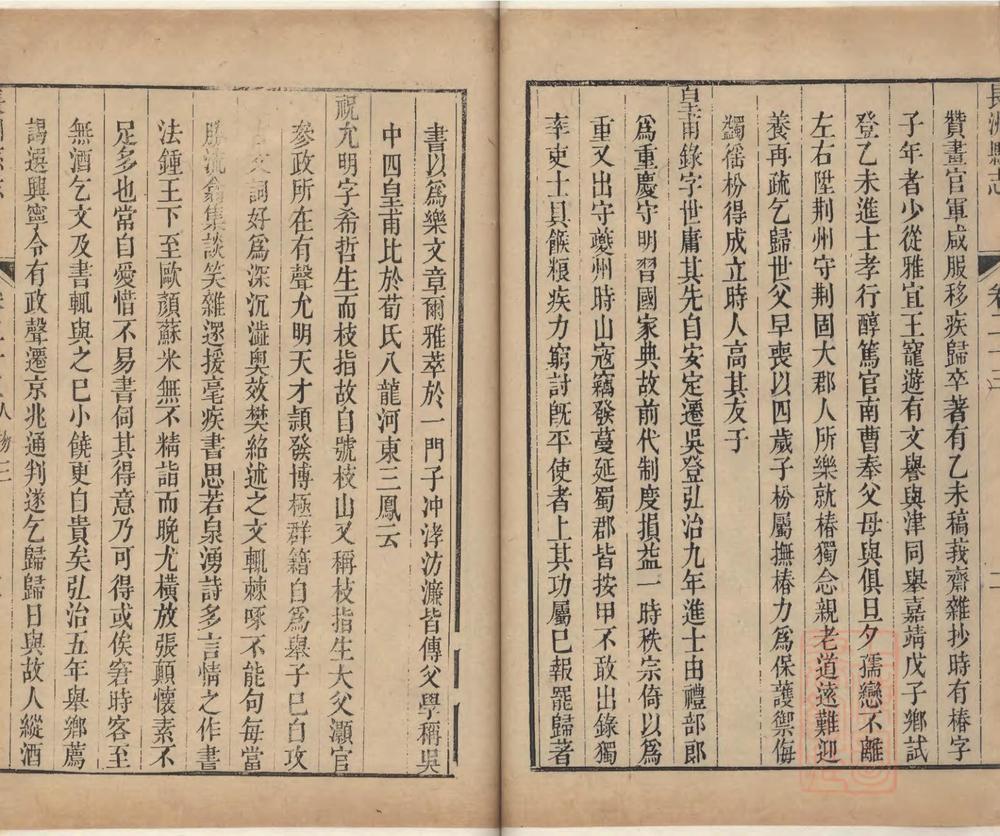 長洲縣志
卷二十三
二
贊畫官軍咸服移疾歸卒著有乙未稿莪齋雜抄時有椿字
子年者少從雅宜王寵遊有文譽與津同舉嘉靖戊子鄉試
登乙未進士孝行醇篤官南曹奉父母與俱旦夕孺戀不離
左右陞荆州守荆固大郡人所樂就椿獨念親老道遠難迎
養再疏乞歸世父早喪以四歲子枌屬撫椿力爲保護禦侮
蠲徭枌得成立時人高其友于
皇甫錄字世庸其先自安定遷吳登弘治九年進士由禮部郎
爲重慶守明習國家典故前代制度損益一時秩宗倚以爲
重又出守夔州時山寇竊發蔓延蜀郡皆按甲不敢出錄獨
率吏士具餱粮疾力窮討旣平使者上其功屬巳報罷歸著
書以爲樂文章爾雅萃於一門子冲涍汸濂皆傳父學稱吳
中四皇甫比於荀氏八龍河東三鳳云
祝允明字希哲生而枝指故自號枝山又稱枝指生大父灝官
參政所在有聲允明天才頴發博極群籍自爲舉子巳白攻
古文詞好爲深沉澁奧效樊紹述之文輒棘啄不能句每當
勝流翕集談笑雜遝援毫疾書思若泉湧詩多言情之作書
法鍾王下至歐顏蘇米無不精詣而晚尤橫放張顛懷素不
足多也常自愛惜不易書伺其得意乃可得或俟窘時客至
無酒乞文及書輒與之巳小饒更自貴矣弘治五年舉鄉薦
謁選興寧令有政聲遷京兆通判遂乞歸歸日與故人縱酒